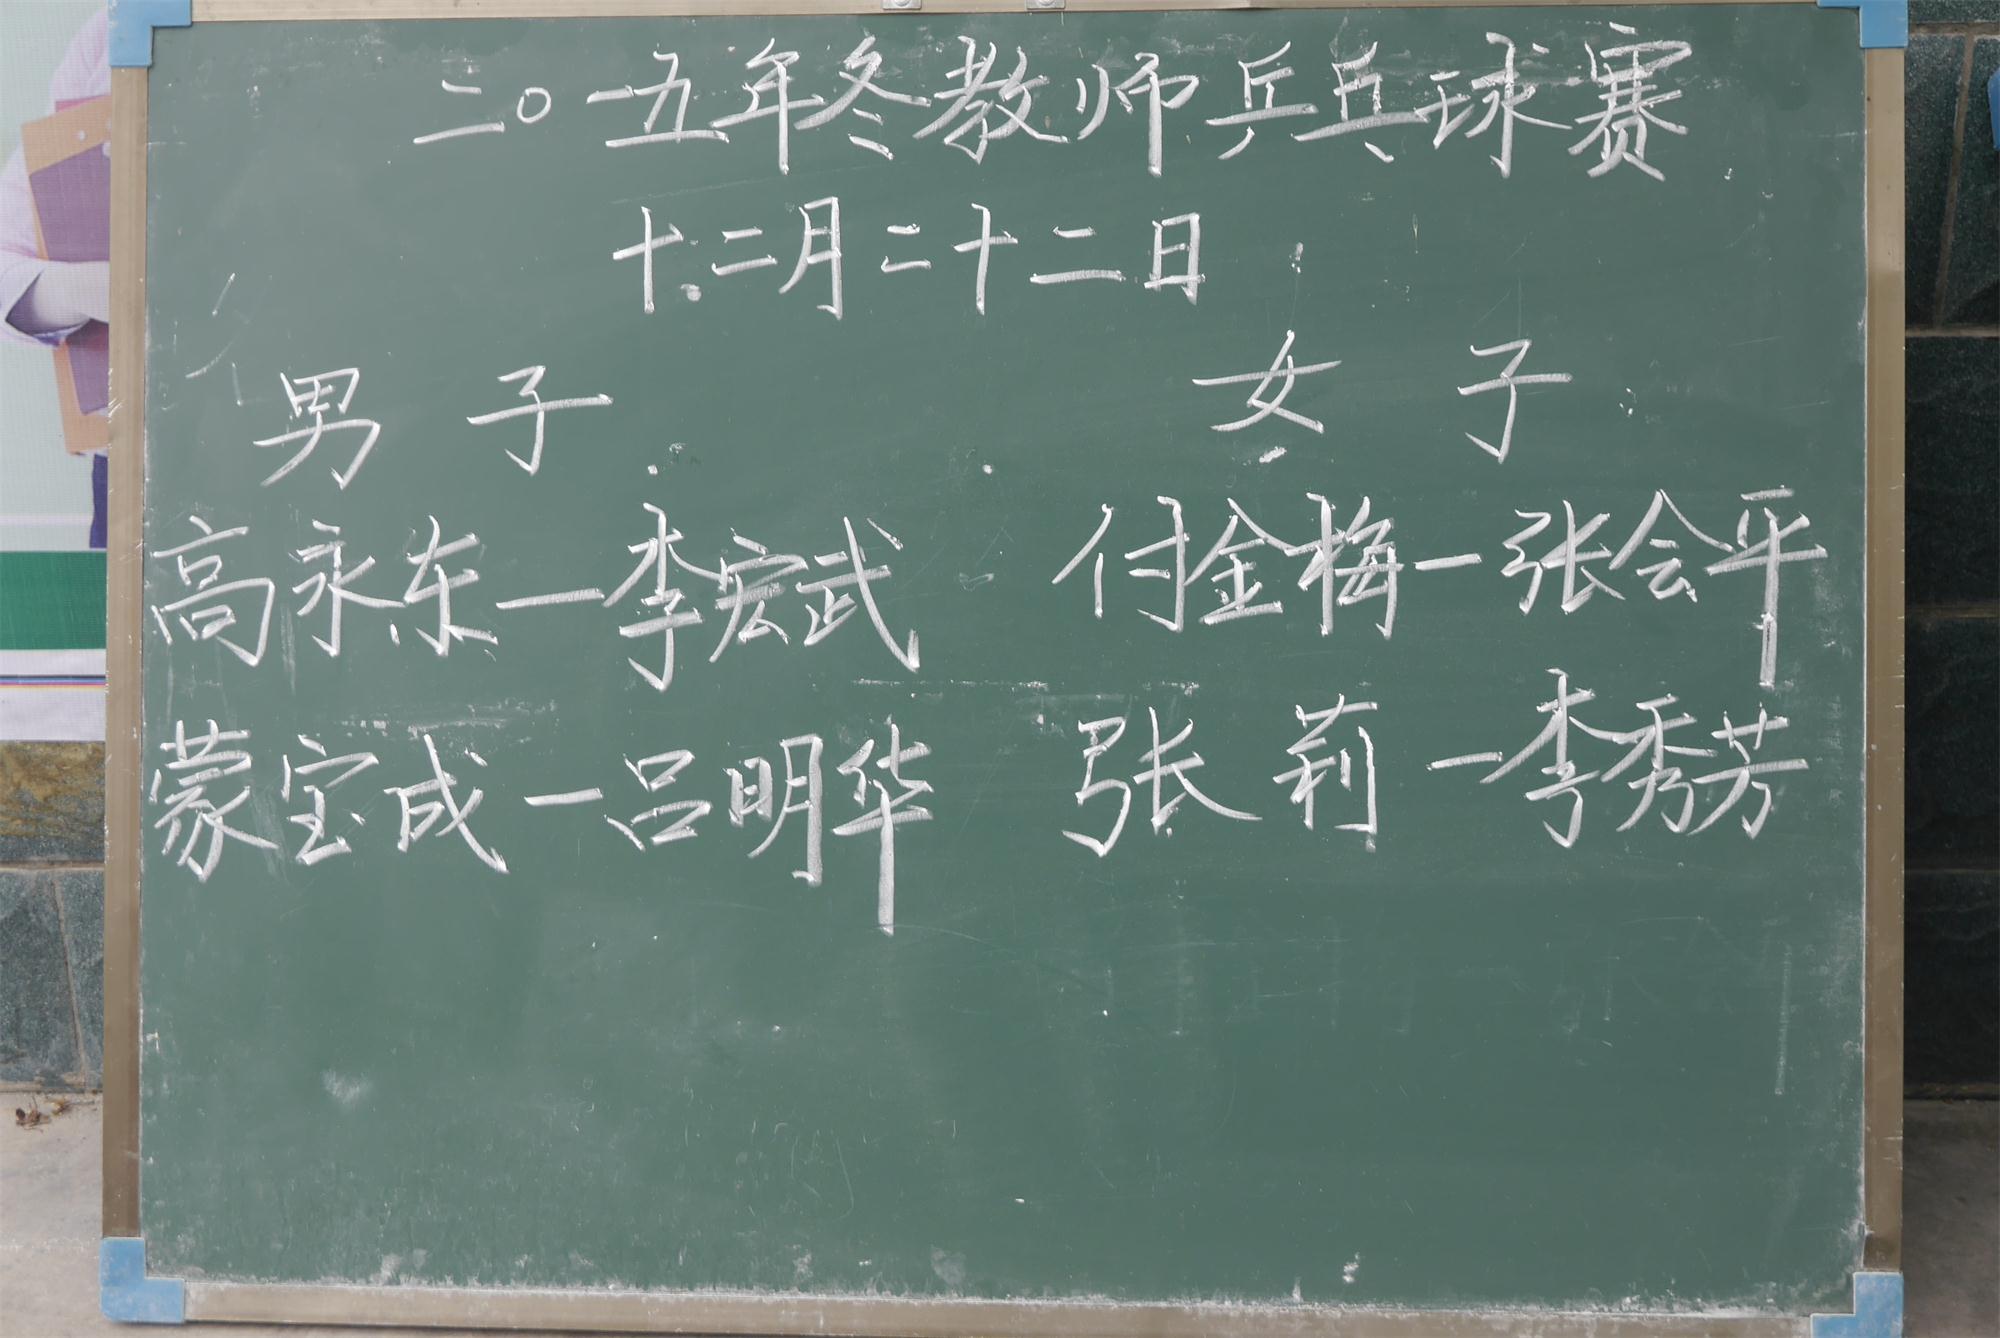 二〇一五年冬教师乒乓球赛
十二月二十二日
男 子 女 子
高永东—李宏武 付金梅—张会平
蒙宝成—吕明华 张 莉—李秀芳